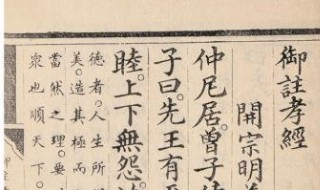 御註孝經
開宗明
仲尼居。曾子
子曰。先王有
睦。上下無怨。
德者。人生所
美。造其極而
當然之理。要
衆也。順天下。